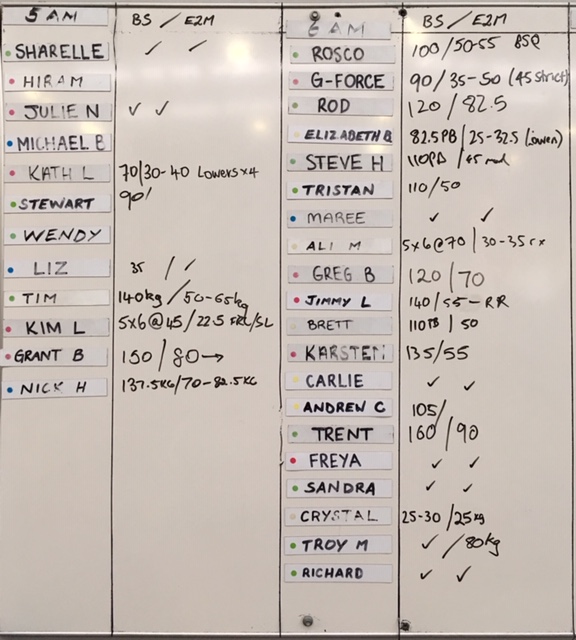 5 AM BS / E2M
SHARELLE ✓ ✓
HIRAM
JULIE N ✓ ✓
MICHAEL B
KATH L 70/30-40 Lowers x4
STEWART 90/
WENDY
LIZ 35 / ✓
TIM 140kg / 50-65kg
KIM L 5x6@45/22.5
GRANT B 150 / 80→
NICK H 137.5KG/70-82.5KG
6 AM BS / E2M
ROSCO 100/50-55 BSQ
G-FORCE 90/35-50 (45 strict)
ROD 120/82.5
ELIZABETH B 82.5PB/25-32.5 (lower)
STEVE H 110PB /45
TRISTAN 110/50
MAREE ✓ ✓
ALI M 5x6@70/30-35 rx
GREG B 120/70
JIMMY L 140/55-RR
BRETT 110PB | 50
KARSTEN 135/55
CARLIE ✓ ✓
ANDREW C 105/
TRENT 160/90
FREYA ✓ ✓
SANDRA ✓ ✓
CRYSTAL 25-30/25kg
TROY M ✓ /80kg
RICHARD ✓ ✓